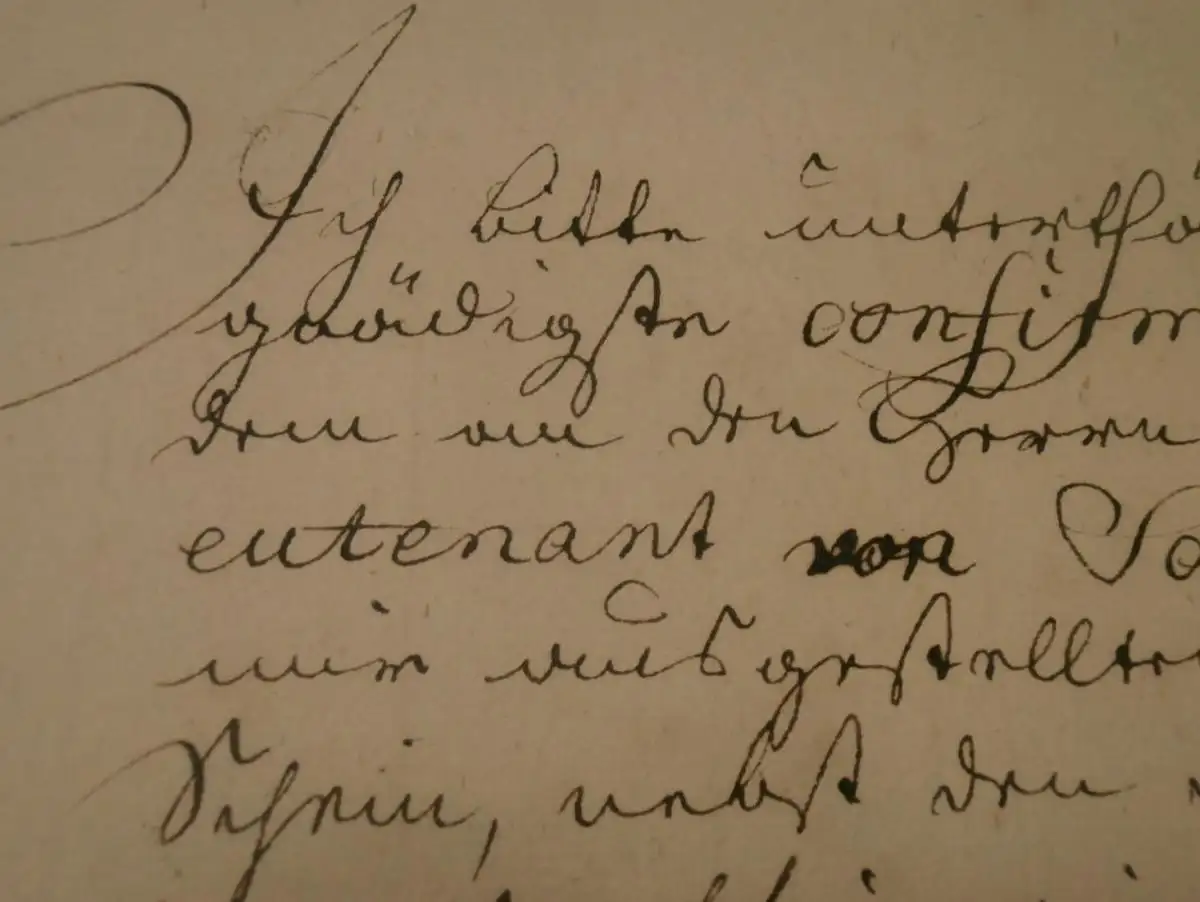 Ich bitte unterthä
gnädigste confirm
dem an den Herrn
eutenant von So
mir ausgestellte
Schein, nebst den